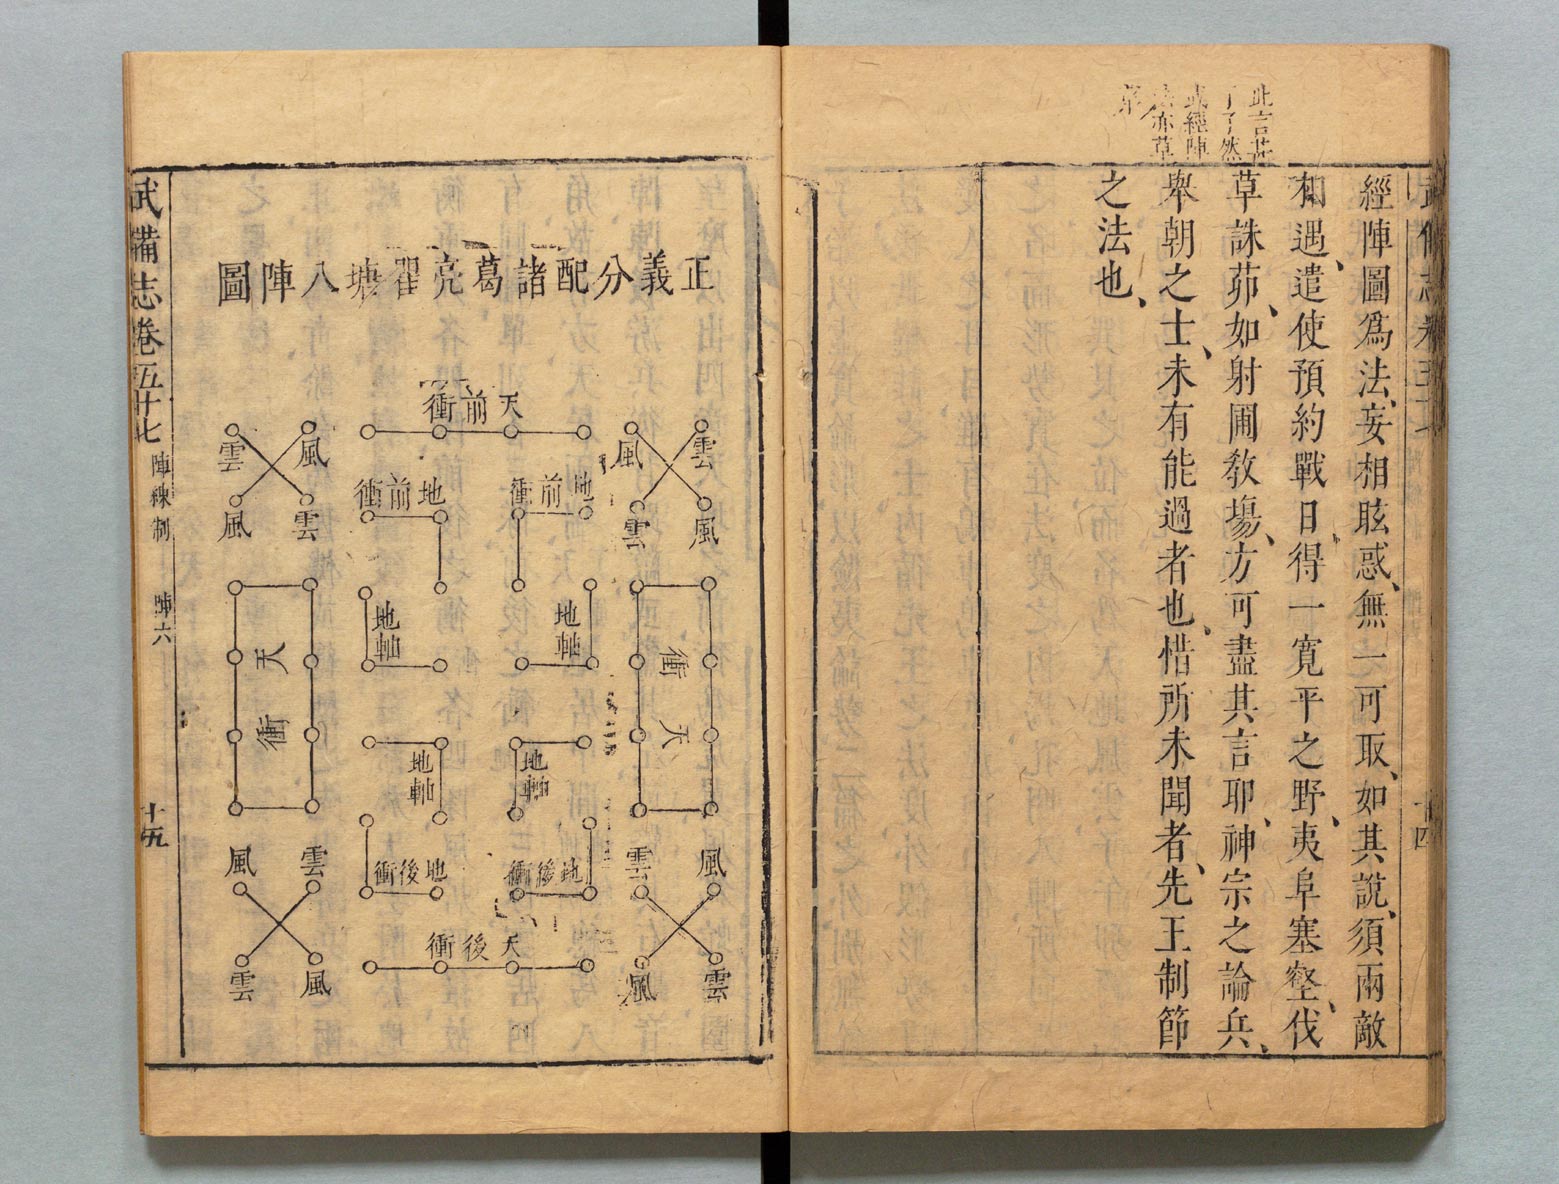 此言甚
了了然
武經陣
法亦草
草
經陣圖爲法、妄相眩惑、無一可取、如其說、須兩敵
相遇、遣使預約戰日、得一寬平之野、夷阜塞壑、伐
草誅茆、如射圃教場、方可盡其言耶、神宗之論兵、
舉朝之士、未有能過者也、惜所未聞者、先王制節
之法也、
十四
正義分配諸葛亮瞿塘八陣圖
天前衝
雲
風
雲
風
地前衝
地前衝
風
雲
風
雲
地軸
地軸
天衝
天衝
地軸
地軸
地後衝
地後衝
風
雲
風
雲
天後衝
雲
風
風
雲
武備志卷五十七
陣練制
陣六
十五